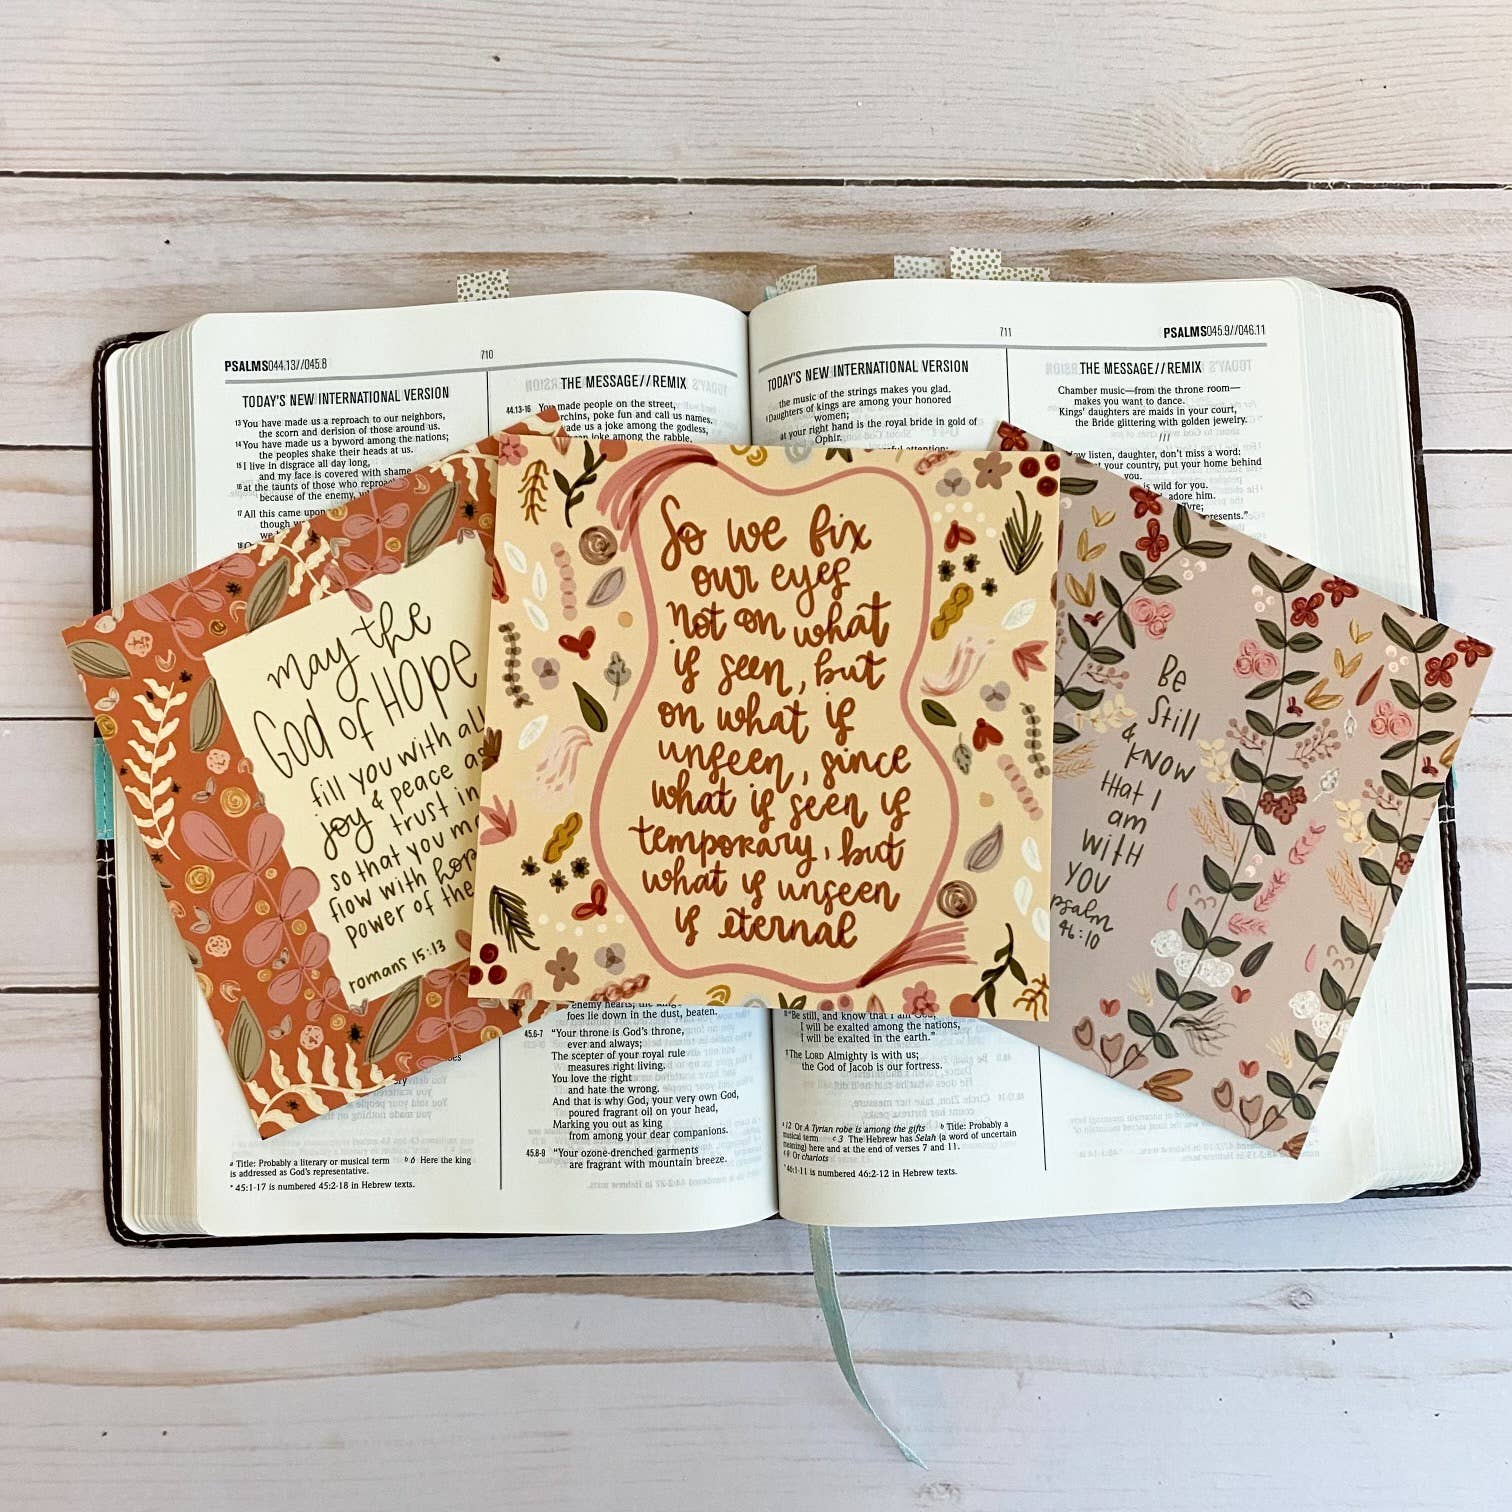 PSALMS044.13//045.8
710
TODAY'S NEW INTERNATIONAL VERSION
13 You have made us a reproach to our neighbors,
the scorn and derision of those around us.
14 You have made us a byword among the nations;
the peoples shake their heads at us.
15 I live in disgrace all day long,
and my face is covered with shame
16 at the taunts of those who
because of the enemy,
17 All this came upon
though
THE MESSAGE//REMIX
44.13-16 You made people on the street,
poke fun and call us names.
us a joke among the godless,
joke among the rabble.
711
PSALMS045.9//046.11
TODAY'S NEW INTERNATIONAL VERSION
the music of the strings makes you glad.
Daughters of kings are among your honored
women;
at your right hand is the royal bride in gold of
Ophir.
THE MESSAGE//REMIX
Chamber music—from the throne room—
makes you want to dance.
Kings' daughters are maids in your court,
the Bride glittering with golden jewelry.
///
listen, daughter, don't miss a word:
your country, put your home behind
you.
is wild for you.
adore him.
may the
God of HOPE
fill you with all
joy & peace as
trust in
so that you
flow with
power of the
romans 15:13
So we fix
our eyes
not on what
is seen, but
on what is
unseen, since
what is seen is
temporary, but
what is unseen
is eternal
Be
Still
& KNOW
that I
am
with
you
psalm
46:10
a Title: Probably a literary or musical term b 6 Here the king
is addressed as God's representative.
* 45:1-17 is numbered 45:2-18 in Hebrew texts.
enemy hearts;
foes lie down in the dust, beaten.
45.6-7 "Your throne is God's throne,
ever and always;
The scepter of your royal rule
measures right living.
You love the right
and hate the wrong.
And that is why God, your very own God,
poured fragrant oil on your head,
Marking you out as king
from among your dear companions.
45.8-9 "Your ozone-drenched garments
are fragrant with mountain breeze.
"Be still, and know that I am God;
I will be exalted among the nations,
I will be exalted in the earth."
The LORD Almighty is with us;
the God of Jacob is our fortress.
a 12 Or A Tyrian robe is among the gifts b Title: Probably a
musical term c 3 The Hebrew has Selah (a word of uncertain
meaning) here and at the end of verses 7 and 11.
d 9 Or chariots
* 46:1-11 is numbered 46:2-12 in Hebrew texts.